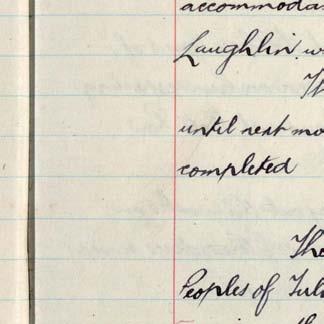 accommoda
Laughlin w
until next mo
completed
The
Peoples of Tul